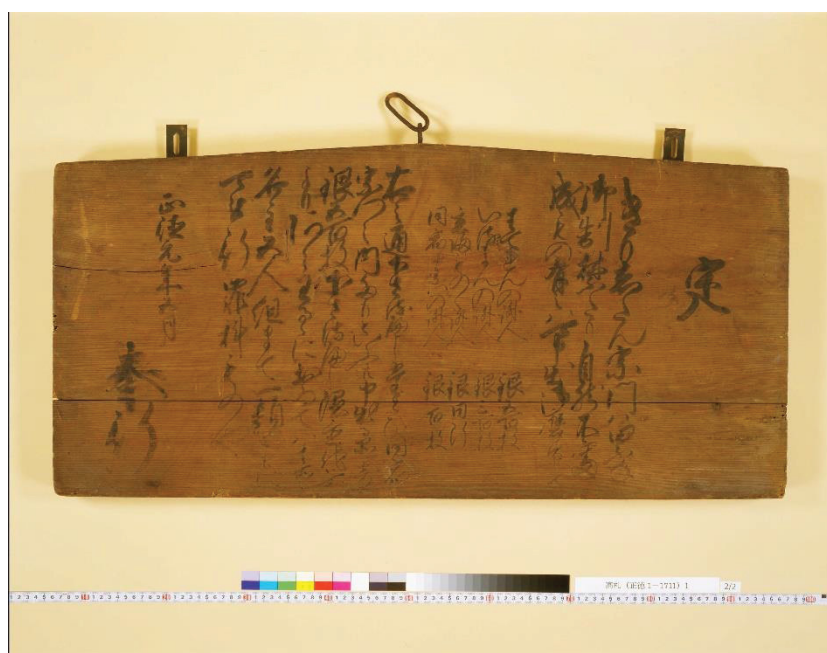 定
きりしたん宗門累年
御制禁たり自然不審
成もの有之ハ申出
はてれんの訴人 銀五百枚
いるまんの訴人 銀三百枚
立かへり者の訴人 銀同断
同宿并宗門の訴人 銀百枚
右之通下さるへしたとひ同宿
宗門之内たりといふとも申出品
銀五百枚下さるへし隠置他所
よりあらはるゝにおゐてハ其所
名主五人組まて一類
可被行罪科もの也
正徳元年五月
奉行
高札（正徳1－1711）1
2/2